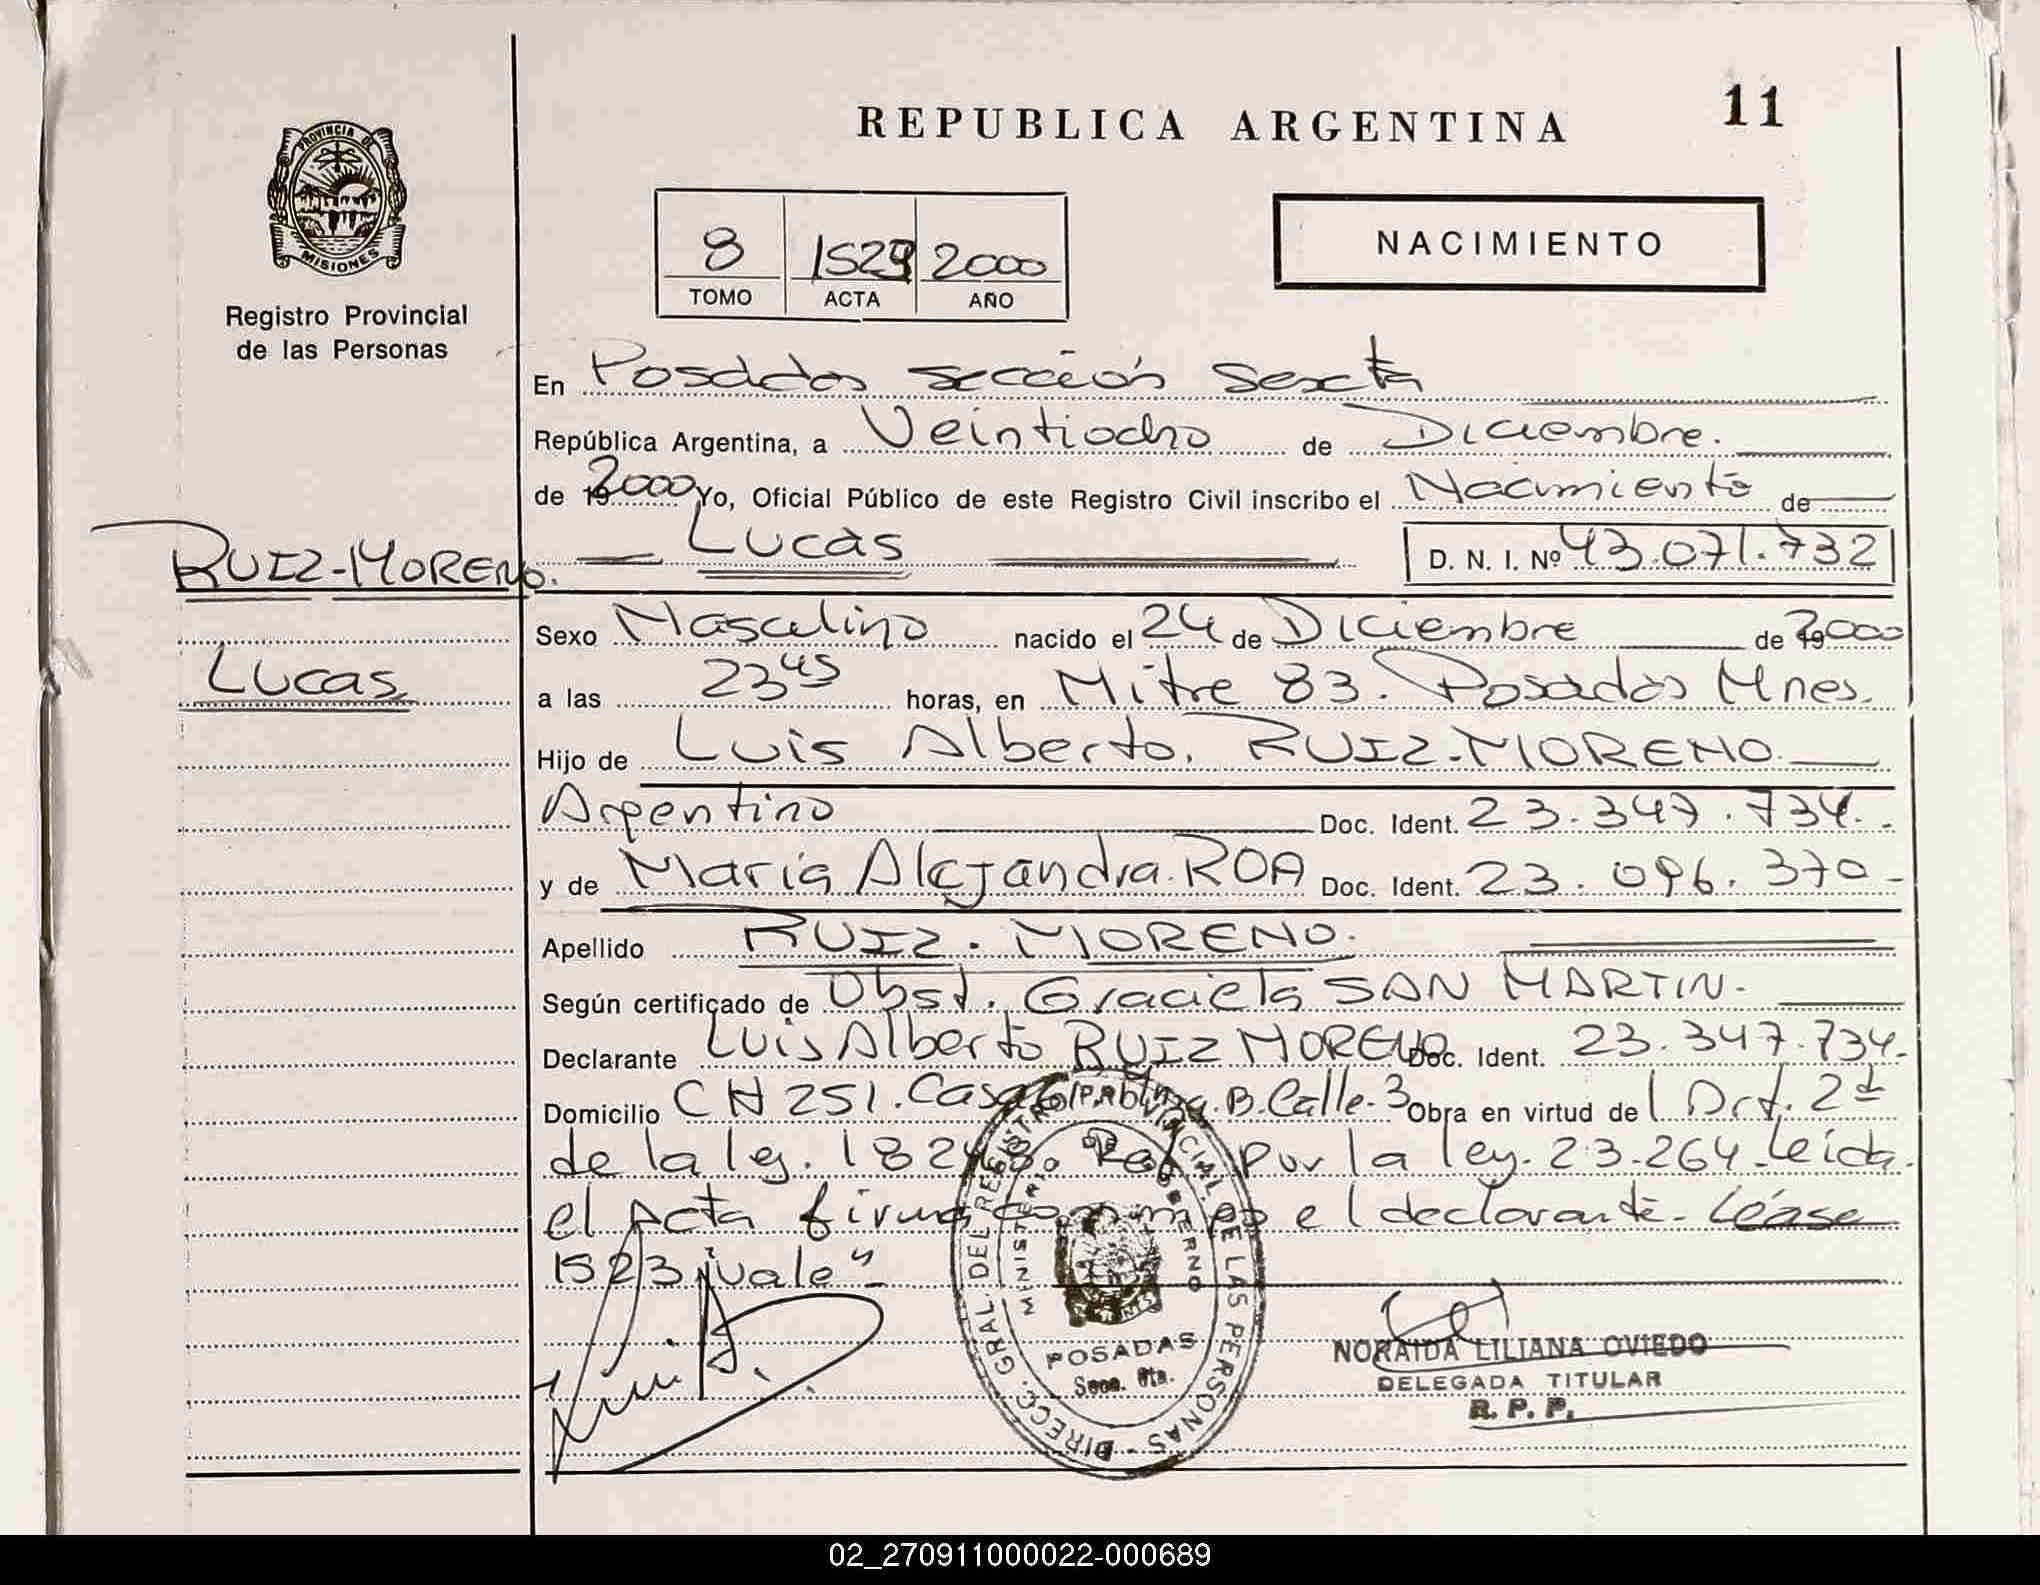 REPUBLICA ARGENTINA
11
PROVINCIA DE
MISIONES
Registro Provincial
de las Personas
8 1529 2000
TOMO ACTA AÑO
NACIMIENTO
En Posadas sección sexta
República Argentina, a Veintiocho de Diciembre.
de 2000 Yo, Oficial Público de este Registro Civil inscribo el Nacimiento de
Lucas D. N. I. Nº 43.071.732
RUIZ-MORENO.
Sexo Masculino nacido el 24 de Diciembre de 2000
Lucas
a las 23 45 horas, en Mitre 83. Posadas Mnes.
Hijo de Luis Alberto. RUIZ-MORENO.
Argentino Doc. Ident. 23.347.734.-
y de María Alejandra. ROA Doc. Ident. 23.096.370-
Apellido RUIZ. MORENO.
Según certificado de Obst. Graciela SAN MARTIN.
Declarante Luis Alberto RUIZ MORENO Doc. Ident. 23.347.734.-
Domicilio CH 251. Casa B. Calle-3 Obra en virtud del Art. 2d
de la ley. 18248. Ref. por la ley. 23.264. Leída
el Acta firma conmigo el declarante- Léase
1523 "vale"-
DIRECC. GRAL. DEL REGISTRO PROVINCIAL DE LAS PERSONAS
MINISTERIO DE GOBIERNO
POSADAS
Secc. 6ta.
NORAIDA LILIANA OVIEDO
DELEGADA TITULAR
R. P. P.
02_270911000022-000689